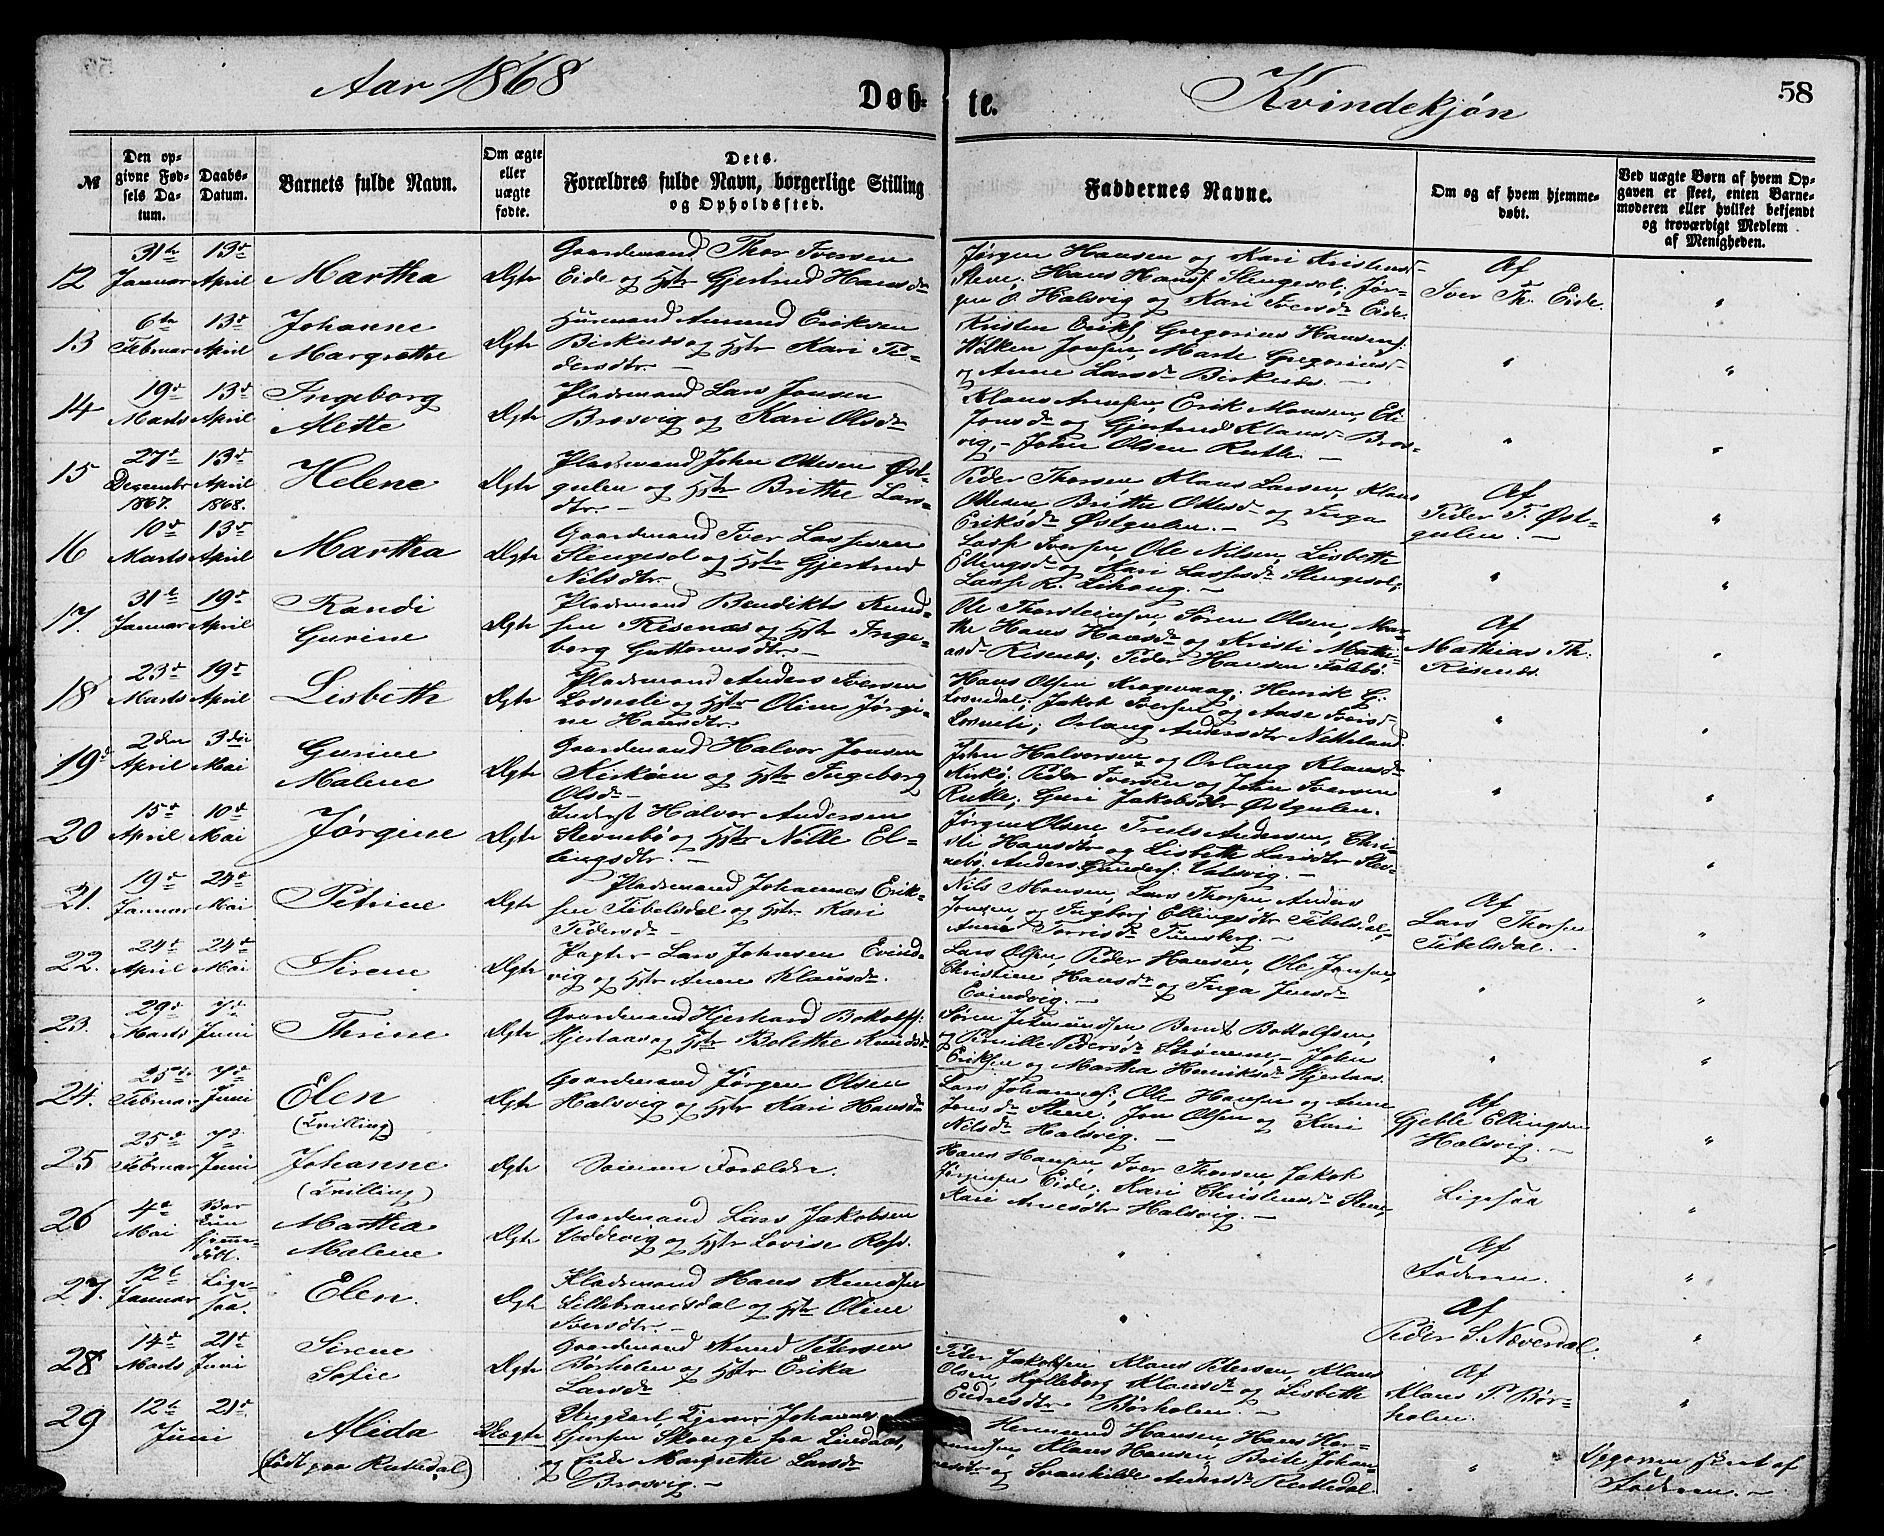 Aar 1868
Døb-
te.
Kvindekjøn
58
№
Den op-
givne Fød-
sels Da-
tum.
Daabs-
Datum.
Barnets fulde Navn.
Om ægte
eller
uægte
fødte.
Dets
Forældres fulde Navn, borgerlige Stilling
og Opholdssted.
Faddernes Navne.
Om og af hvem hjemme-
døbt.
Ved uægte Børn af hvem Op-
gaven er skeet, enten Barne-
moderen eller hvilket bekjendt
og troværdigt Medlem
af Menigheden.
12
31te
Januar
13d
April
Martha
Ægte
Gaardemand Thor Iversen
Eide og Hstr Gjertrud Hansdr
Jørgen Hansen og Kari Kristensd
Stene; Hans Hans. Slengesol; Jør-
gen O. Halsvig og Kari Iversdr Eide.
Af
Iver Th. Eide.
"
13
6te
Februar
13d
April
Johanne
Margrethe
Ægte
Huusmand Amund Eriksen
Birknæs og Hstr Kari Pe-
dersdtr. —
Kristen Eriks, Gregorius Hansen,
Wilken Jonsen, Marte Gregoriusd
og Anne Larsdr Birknæs. —
"
"
14
19d
Marts
13d
April
Ingeborg
Mette
Ægte
Pladsmand Lars Jonsen
Brosvig og Kari Olsdr
Klaus Ansen, Erik Monsen, Eli
Jonsdr og Gjertrud Klausdr Bros-
vig, — John Olsen Rutle. —
"
"
15
27d
Decembr
1867.
13d
April
1868.
Helene
Ægte
Pladsmand John Ottesen Øst-
gulen og Hstr Brithe Lars-
dtr. —
Peder Thorsen, Klaus Larsen, Klaus
Ottesen, Brithe Ottesd og Inga
Eriksdr Østgulen. —
Af
Peder T. Øst-
gulen. —
"
16
10d
Marts
13d
April
Martha
Ægte
Gaardemand Iver Lassesen
Slengesol og Hstr Gjertrud
Nilsdtr.
Lasse Iversen, Ole Nilsen, Lisbette
Ellingsdr og Kari Lassesdr Slengesol;
Lasse R. Lihaug. —
"
"
17.
31te
Januar
19d
April
Randi
Gurine
Ægte
Pladsmand Bendikt Knud-
sen Risenæs og Hstr Inge-
borg Guttormsdtr. —
Ole Thorsteinsen, Søren Olsen, Mar-
the Hans Hansdr og Kristi Mathi-
asdr Risenæs; Peder Hansen Falsbø.
Af
Mathias Th.
Risenæs.
"
18
23d
Marts
19d
April
Lisbeth
Ægte
Pladsmand Anders Iversen
Losneli og Hstr Oline Jørgi-
ne Hansdtr.
Hans Olsen Kragevaag; Henrik G.
Losnedal; Jakob Iversen og Aase Iversd
Losneli; Orlaug Andersdtr Nitteland.
"
"
19d
2den
April
3die
Mai
Gurine
Malene
Ægte
Gaardemand Halvor Jonsen
Kirkøen og Hstr Ingeborg
Olsdr
John Halvorsen og Orlaug Klausdr
Kirkø; Peder Iversen og John Iversen
Rutle; Guri Jakobsdtr Østgulen.
"
"
20
15d
April
10d
Mai
Jørgine
Ægte
Inderst Halvor Andersen
Stevnebø og Hstr Nille El-
lingsdtr. —
Jørgen Olsen, Truls Andersen, Chri-
sti Hansdtr og Lisbeth Larsdtr Stev-
nebø; Anders Gunders. Valsvig. —
"
21.
19d
Januar
24d
Mai
Petrine
Ægte
Pladsmand Johannes Erik-
sen Tibelsdal og Hstr Kari
Pedersdr —
Nils Monsen, Lars Thorsen, Anders
Jonsen og Ingborg Ellingsdtr Tibelsdal;
Anna Torrisdr Tunsberg. —
Af
Lars Thorsen
Tibelsdal. —
"
22.
24d
April
24d
Mai
Sirene
Ægte
Pagter Lars Johnsen Evind-
vig og Hstr Anne Klausdr.
Lars Olsen, Peder Hansen, Ole Jonsen,
Christine Hansdr og Inga Jensdr
Evindvig. —
"
"
23.
29d
Marts
7d
Juni
Thrine
Ægte
Gaardemand Gjerhard Bottolfs.
Hjertaas og Hstr Bolethe Knudsdr
Søren Jetmundsen, Bernt Bottolfsen,
og Pernille Pedersdr Strømme, — John
Eriksen og Martha Henriksdr Hjertaas.
"
"
24.
25de
Februar
7d
Juni
Elen
(Tvilling)
Ægte
Gaardemand Jørgen Olsen
Halsvig og Hstr Kari Hansdr
Lars Johannes., Ole Hansen og Anne
Jonsdr Stene; Jon Olsen og Kari
Nilsdr Halsvig. —
Af
Gjeble Ellingsen
Halsvig. —
"
25
25d
Februar
7d
Juni
Johanne
(Tvilling)
Ægte
Samme Forældre.
Hans Hansen, Iver Thorsen, Jakob
Jørgensen Eide; Kari Christensdr Stene,
Kari Arnesdtr Halsvig. —
Ligesaa
"
26
4d
Mai
Bar
kun
hjemme-
døbt.
Martha
Malene
Ægte
Gaardemand Lars Jakobsen
Veddevig og Hstr Lovise Rosd.
"
Af
Faderen.
"
27.
12te
Januar
Lige-
saa.
Elen.
Ægte
Pladsmand Hans Knudsen
Lillebrandsdal og Hstr Oline
Iversdtr. —
"
Af
Peder S. Næverdal.
"
28
14d
Marts
21d
Juni
Sirene
Sofie
Ægte
Gaardemand Knud Petersen
Børholen og Hstr Erika
Larsdr
Peter Jakobsen, Klaus Petersen, Klaus
Olsen, Hylleborg Klausdr og Lisbeth
Endresdtr Børholen. —
Af
Klaus P. Bør-
holen.
"
29
12te
21d
Juni
Alida
(født paa Rutledal)
Uægte
Ungkarl Tjener Johannes
Sjursen Skauge fra Lindaas,
og Enke Margrethe Larsdr
Brosvig. —
Hermund Hansen, Hans Her-
mundsen, Klaus Hansen, Brite Johan-
nesdtr og Svanhilde Andersdr Rutledal
"
Opgaven skeet af
Faderen. —